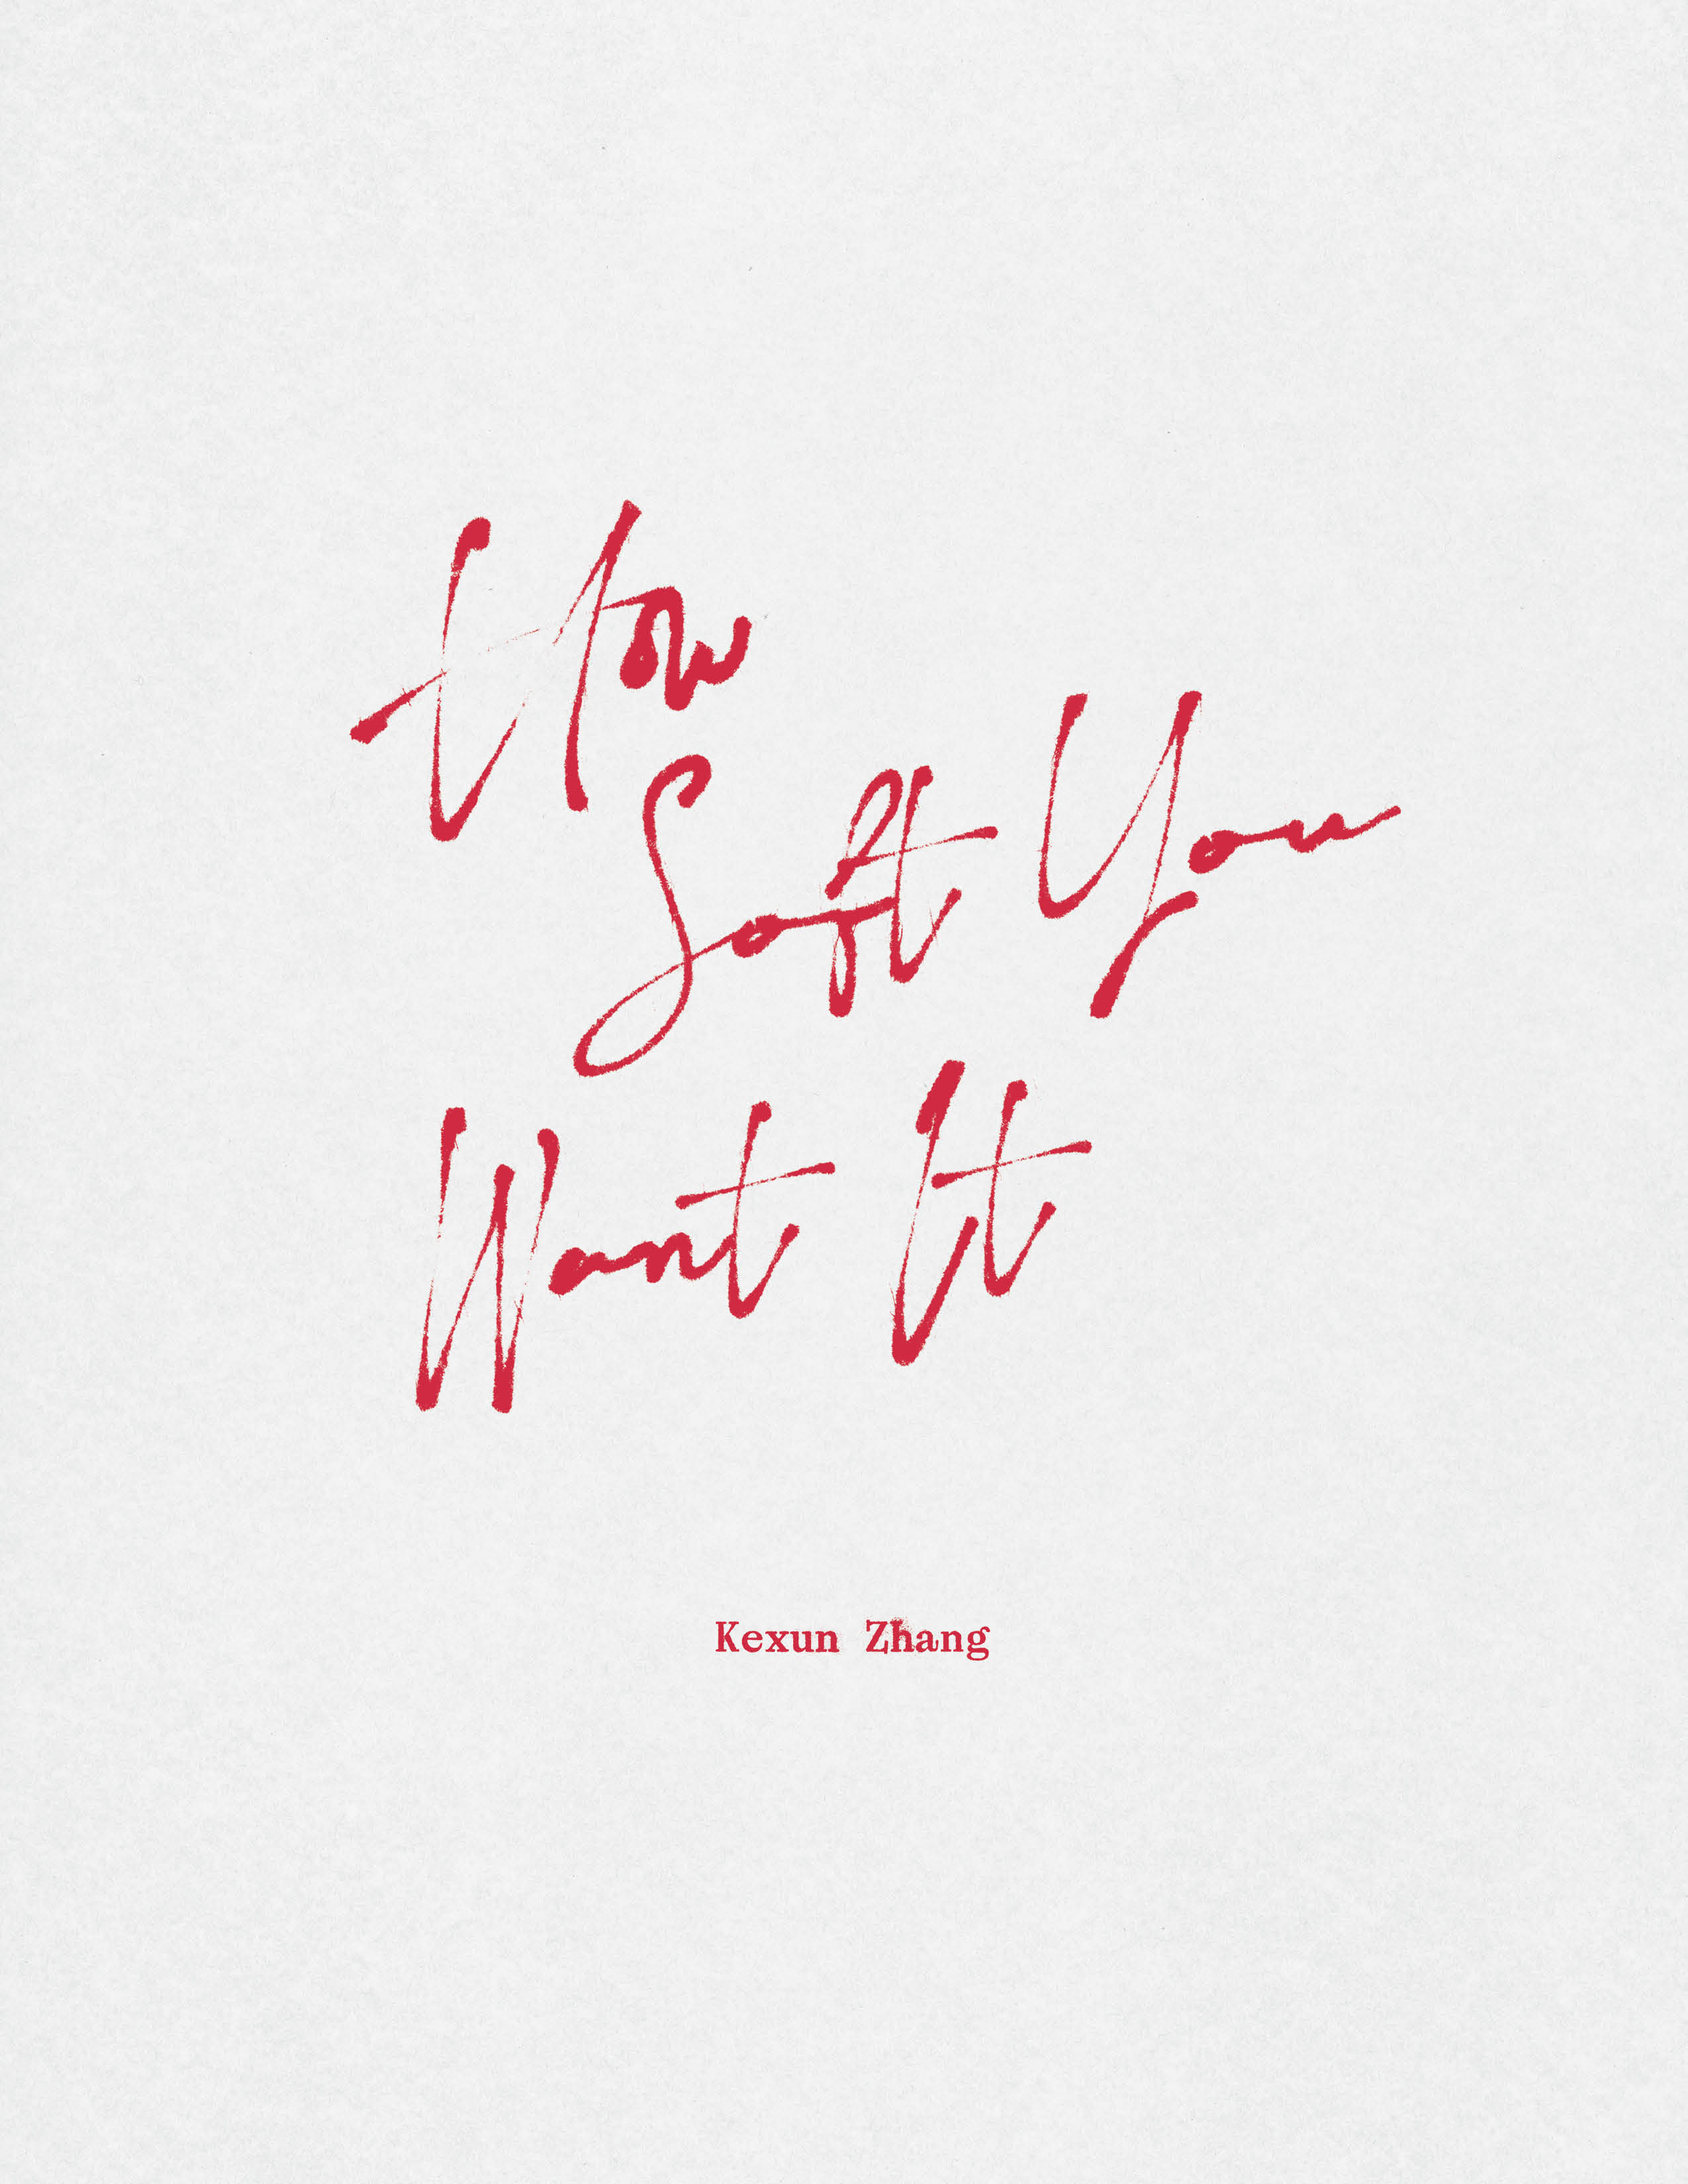 How
Soft You
Want It
Kexun Zhang